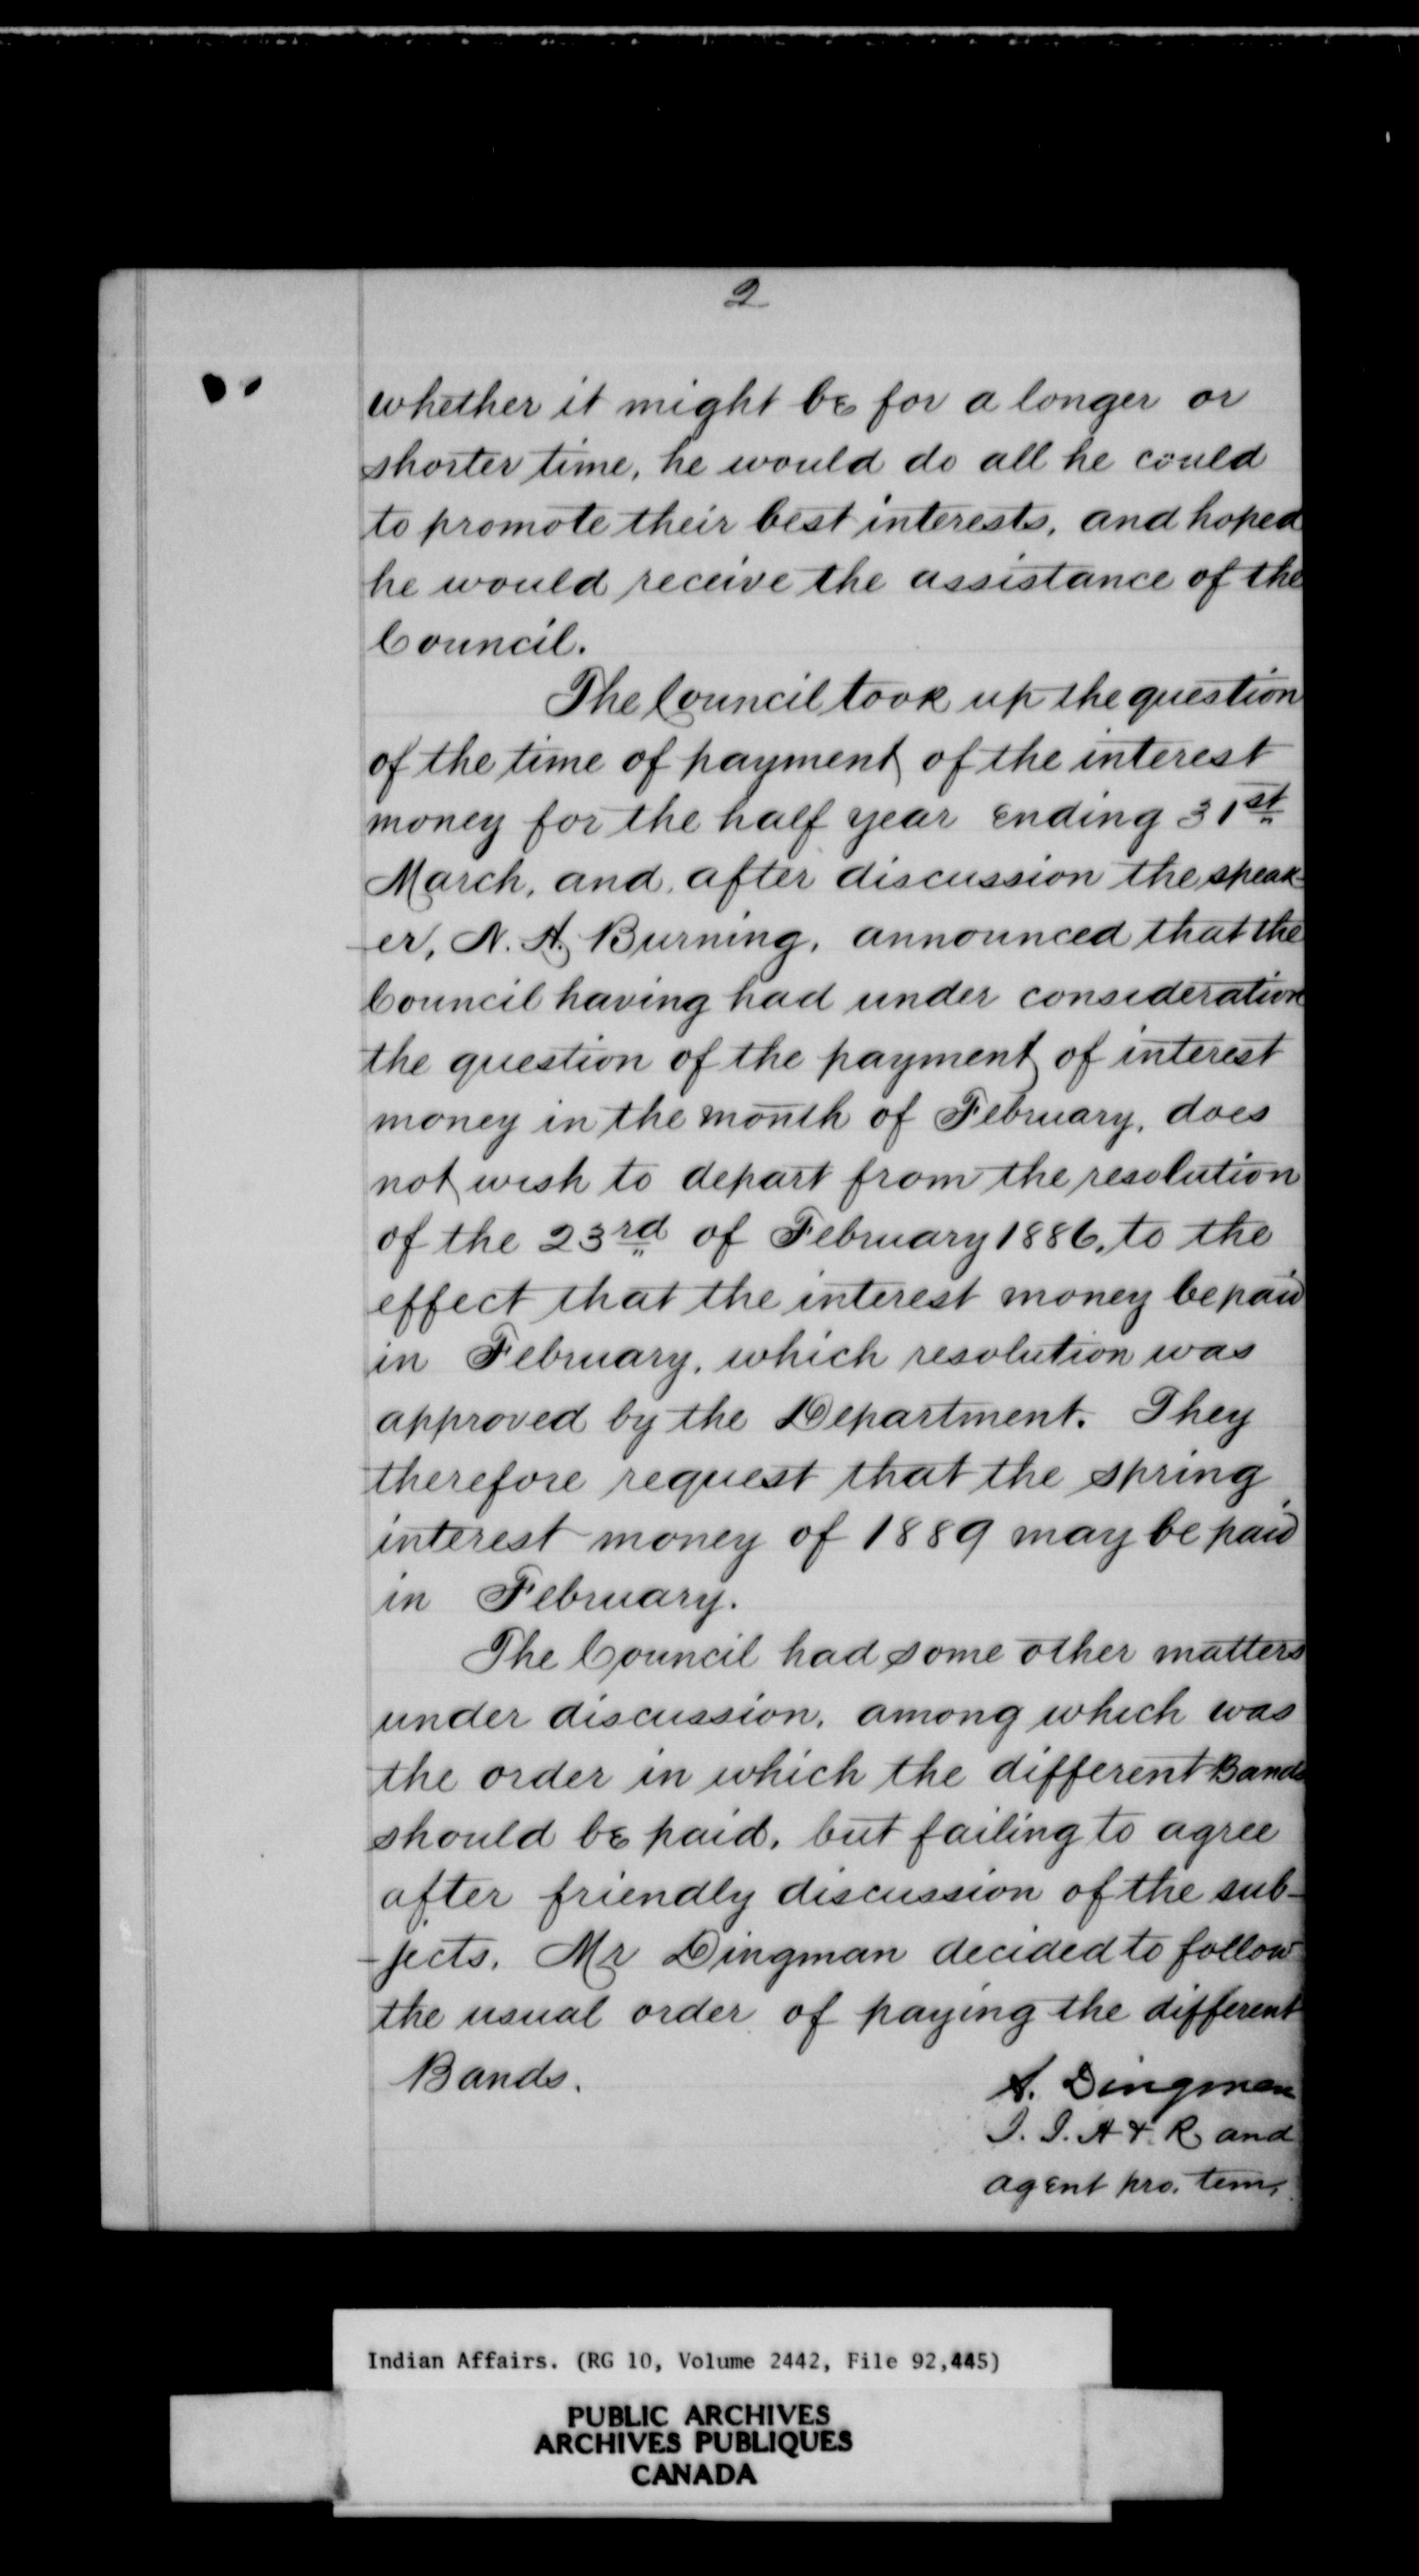 2
whether it might be for a longer or
shorter time, he would do all he could
to promote their best interests, and hoped
he would receive the assistance of the
Council.
The Council took up the question
of the time of payment of the interest
money for the half year ending 31st
March, and, after discussion the speak-
-er, N. A. Burning, announced that the
Council having had under consideration
the question of the payment of interest
money in the month of February, does
not wish to depart from the resolution
of the 23rd of February 1886, to the
effect that the interest money be paid
in February, which resolution was
approved by the Department. They
therefore request that the spring
interest money of 1889 may be paid
in February.
The Council had some other matters
under discussion, among which was
the order in which the different Bands
should be paid, but failing to agree
after friendly discussion of the sub-
-jects, Mr Dingman decided to follow
the usual order of paying the different
Bands.
A. Dingman
I. I. A & R and
agent pro. tem.
Indian Affairs. (RG 10, Volume 2442, File 92,445)
PUBLIC ARCHIVES
ARCHIVES PUBLIQUES
CANADA